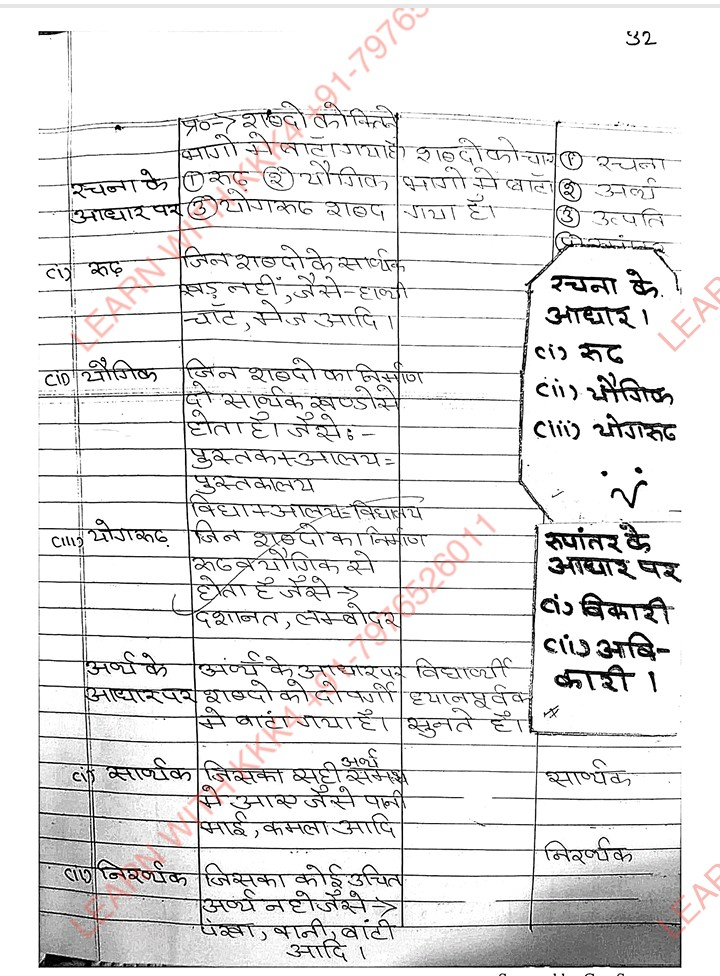 52
प्र०-> शब्दो को कितने
भागो मे बाँटा गया है। शब्दों को चार ① रचना
रचना के ① रूढ़ ② यौगिक भागो मे बांटा ② अर्थ
आधार पर ③ योगरूढ शब्द गया है। ③ उत्पति
(i) रूढ जिन शब्दो के सार्थक
खड़ नहीं, जैसे- हाथी
चाँट, मेज आदि।
रचना के
आधार।
(i) रूढ
(ii) यौगिक
(iii) योगरूढ
(ii) यौगिक जिन शब्दो का निर्माण
दो सार्थक खण्डो से
होता है। जैसे:-
पुस्तक+आलय=
पुस्तकालय
विद्या+आलय=विद्यालय
(iii) योगरूढ़ जिन शब्दो का निर्माण
रूढ व यौगिक से
होता है जैसे->
दशानत, लम्बोदर
रुपांतर के
आधार पर
(i) विकारी
(ii) अवि-
कारी।
अर्थ के अर्थ के आधार पर विद्यार्थी
आधार पर शब्दो को दो वर्गो ध्यानपूर्वक
मे बाटां गया है। सुनते है।
(i) सार्थक जिसका सही अर्थ समझ सार्थक
मे आए जैसे पानी
भाई, कमला आदि
निरर्थक
(ii) निरर्थक जिसका कोई उचित
अर्थ न हो जैसे->
पंखा, वानी, बांटी
आदि।
LEARN WITH KKK4 +91-7976526011